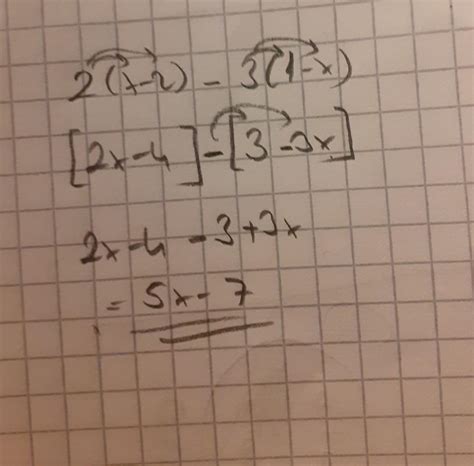 2(x-2) - 3(1-x)
[2x-4]-[3-3x]
2x-4-3+3x
= 5x-7